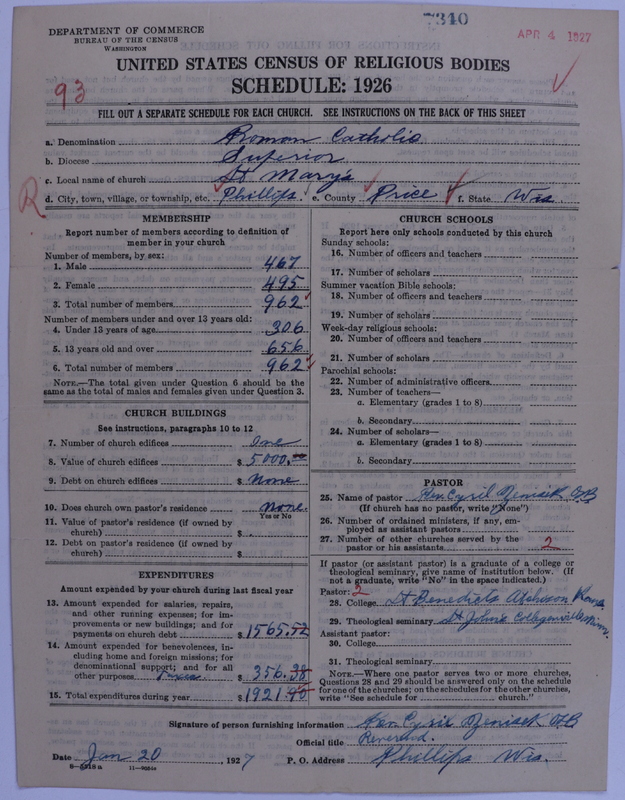 7340
DEPARTMENT OF COMMERCE
BUREAU OF THE CENSUS
WASHINGTON
APR 4 1927
UNITED STATES CENSUS OF RELIGIOUS BODIES
SCHEDULE: 1926
93
FILL OUT A SEPARATE SCHEDULE FOR EACH CHURCH. SEE INSTRUCTIONS ON THE BACK OF THIS SHEET
a. Denomination Roman Catholic
b. Diocese Superior
c. Local name of church St Mary's
R
d. City, town, village, or township, etc. Phillips. e. County Price f. State Wis
MEMBERSHIP
Report number of members according to definition of
member in your church
Number of members, by sex:
1. Male 467
2. Female 495
3. Total number of members 962
Number of members under and over 13 years old:
4. Under 13 years of age 306
5. 13 years old and over 656
6. Total number of members 962
NOTE.—The total given under Question 6 should be the
same as the total of males and females given under Question 3.
CHURCH BUILDINGS
See instructions, paragraphs 10 to 12
7. Number of church edifices One
8. Value of church edifices $ 5000.00
9. Debt on church edifices $ None
10. Does church own pastor's residence none.
Yes or No
11. Value of pastor's residence (if owned by
church) $
12. Debt on pastor's residence (if owned by
church) $
EXPENDITURES
Amount expended by your church during last fiscal year
13. Amount expended for salaries, repairs,
and other running expenses; for im-
provements or new buildings; and for
payments on church debt $ 1565.52
14. Amount expended for benevolences, in-
cluding home and foreign missions; for
denominational support; and for all
other purposes $ 356.38
15. Total expenditures during year $ 1921.90
CHURCH SCHOOLS
Report here only schools conducted by this church
Sunday schools:
16. Number of officers and teachers
17. Number of scholars
Summer vacation Bible schools:
18. Number of officers and teachers
19. Number of scholars
Week-day religious schools:
20. Number of officers and teachers
21. Number of scholars
Parochial schools:
22. Number of administrative officers
23. Number of teachers—
a. Elementary (grades 1 to 8)
b. Secondary
24. Number of scholars—
a. Elementary (grades 1 to 8)
b. Secondary
PASTOR
25. Name of pastor Rev. Cyril Zenisek OSB
(If church has no pastor, write "None")
26. Number of ordained ministers, if any, em-
ployed as assistant pastors
27. Number of other churches served by the
pastor or his assistants 2
If pastor (or assistant pastor) is a graduate of a college or
theological seminary, give name of institution below. (If
not a graduate, write "No" in the space indicated.)
Pastor: 2
28. College St Benedicts Atchison Kans
29. Theological seminary St John's Collegeville Minn.
Assistant pastor:
30. College
31. Theological seminary
NOTE.—Where one pastor serves two or more churches,
Questions 28 and 29 should be answered only on the schedule
for one of the churches; on the schedules for the other churches,
write "See schedule for church."
Signature of person furnishing information Rev Cyril Zenisek OSB
Official title Reverend.
Date Jan 20, 1927 P. O. Address Phillips Wis.